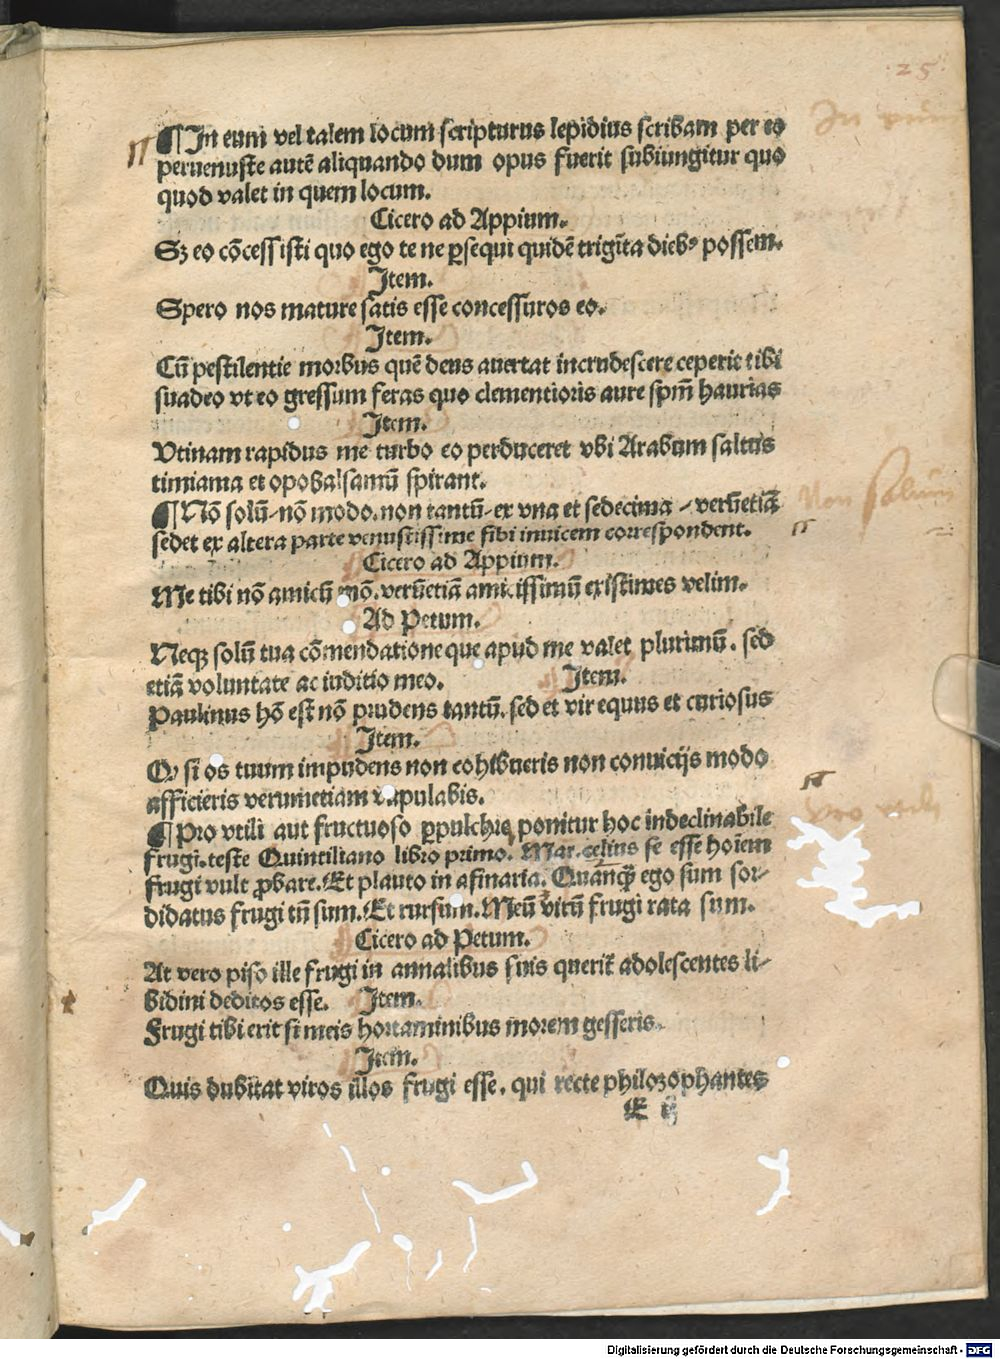 25
In eum
¶ In eum vel talem locum scripturus lepidius scribam per eo
peruenuste autē aliquando dum opus fuerit subiungitur quo
quod valet in quem locum.
Cicero ad Appium.
Sꝫ eo cōcessisti quo ego te ne ꝑsequi quidē trigīta dieb⁹ possem.
Item.
Spero nos mature satis esse concessuros eo.
Item.
Cū pestilentie morbus quē deus auertat incrudescere ceperit tibi
suadeo vt eo gressum feras quo clementioris aure spm̄ haurias
Item.
Vtinam rapidus me turbo eo perduceret vbi Arabum saltus
timiama et opobalsamū spirant.
Non solum
¶ Nō solū-nō modo.non tantū-ex vna et sedecima - verūetiā
sedet ex altera parte venustissime sibi inuicem correspondent.
Cicero ad Appium.
Me tibi nō amicū mō.verūetiā amicissimū existimes velim.
Ad Petum.
Neqꝫ solū tua cōmendatione que apud me valet plurimū. sed
etiā voluntate ac iuditio meo. Item.
Paulinus hō est nō prudens tantū. sed et vir equus et curiosus
Item.
Qꝫ si os tuum impudens non cohibueris non conuicijs modo
afficieris verumetiam vapulabis.
pro vtili
¶ Pro vtili aut fructuoso ꝑpulchre ponitur hoc indeclinabile
frugi.teste Quintiliano libro primo. Mar.celius se esse hoīem
frugi vult ꝓbare.Et plauto in asinaria. Quanqꝫ̄ ego sum sor-
didatus frugi tn̄ sum.Et rursum.Meū virū frugi rata sum.
Cicero ad Petum.
At vero piso ille frugi in annalibus suis querit̄ adolescentes li-
bidini deditos esse. Item.
Frugi tibi erit si meis hortaminibus morem gesseris.
Item.
Quis dubitat viros illos frugi esse. qui recte philozophantes
E ij
Digitalisierung gefördert durch die Deutsche Forschungsgemeinschaft - DFG